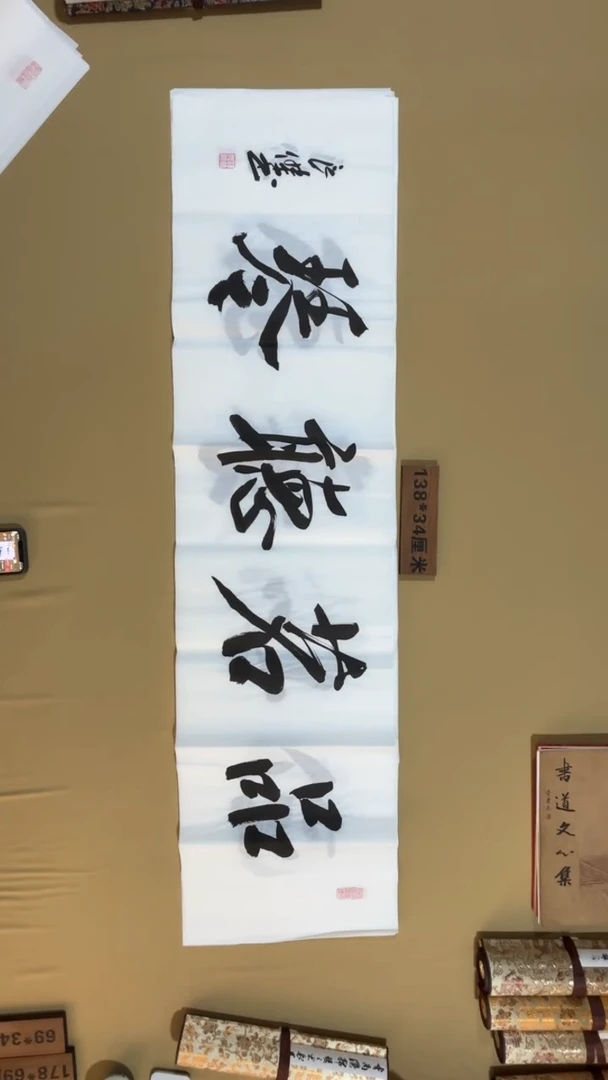 品茗聽琴
138*34厘米
書道文心集
69*34
178*69